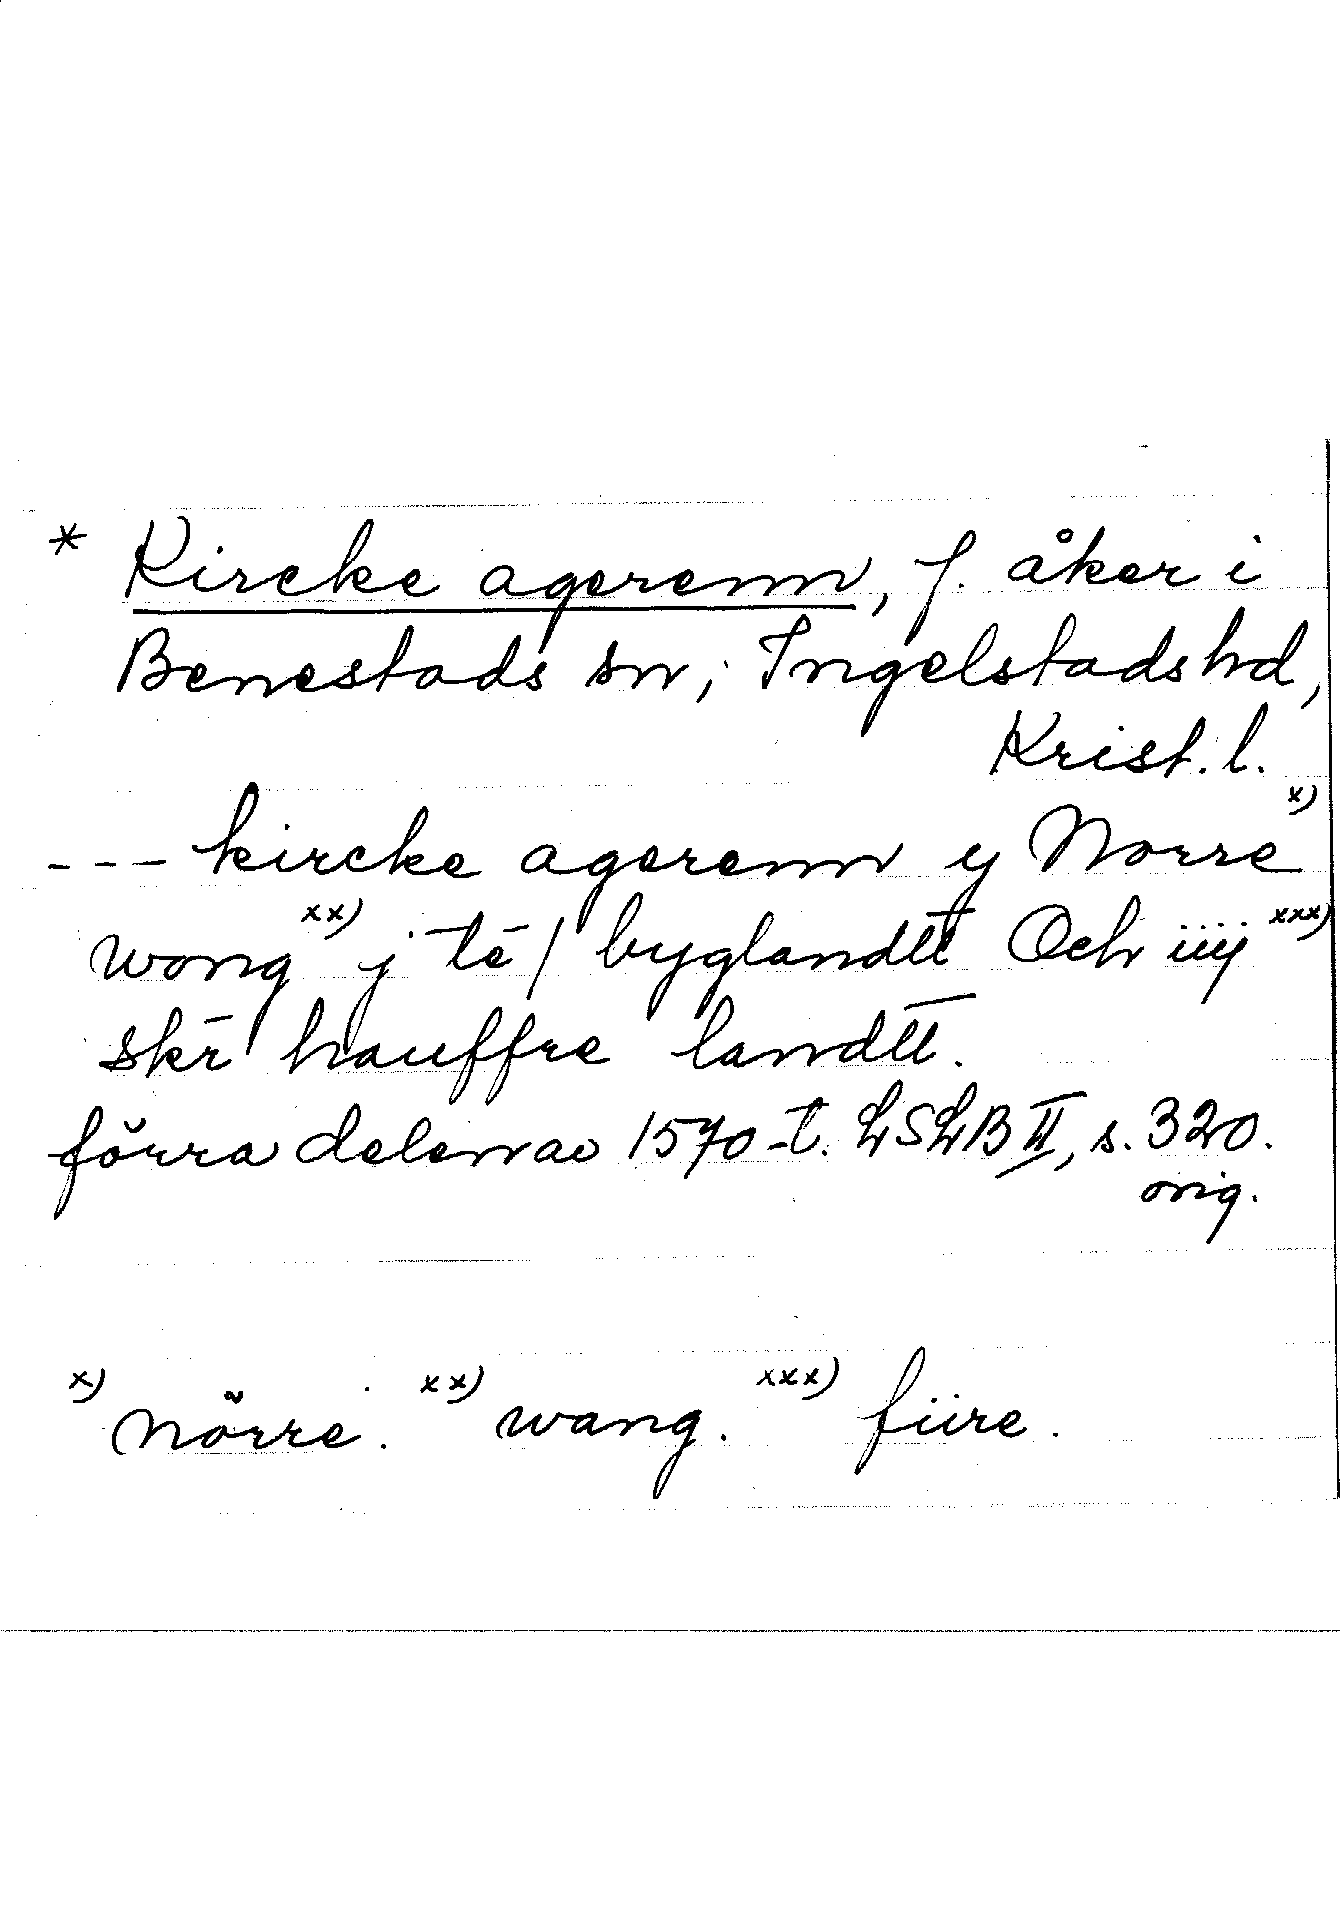 * Kircke agerenn, f. åker i
Benestads sn, Ingelstads hd,
Krist. l.
--- kircke agerenn y Norre x)
wong xx) j tē / byglandtt Och iiij xxx)
skē hauffre landtt.
förra delen av 1570-t. LSLB II, s. 320.
orig.
x) Nörre. xx) wang. xxx) fiire.